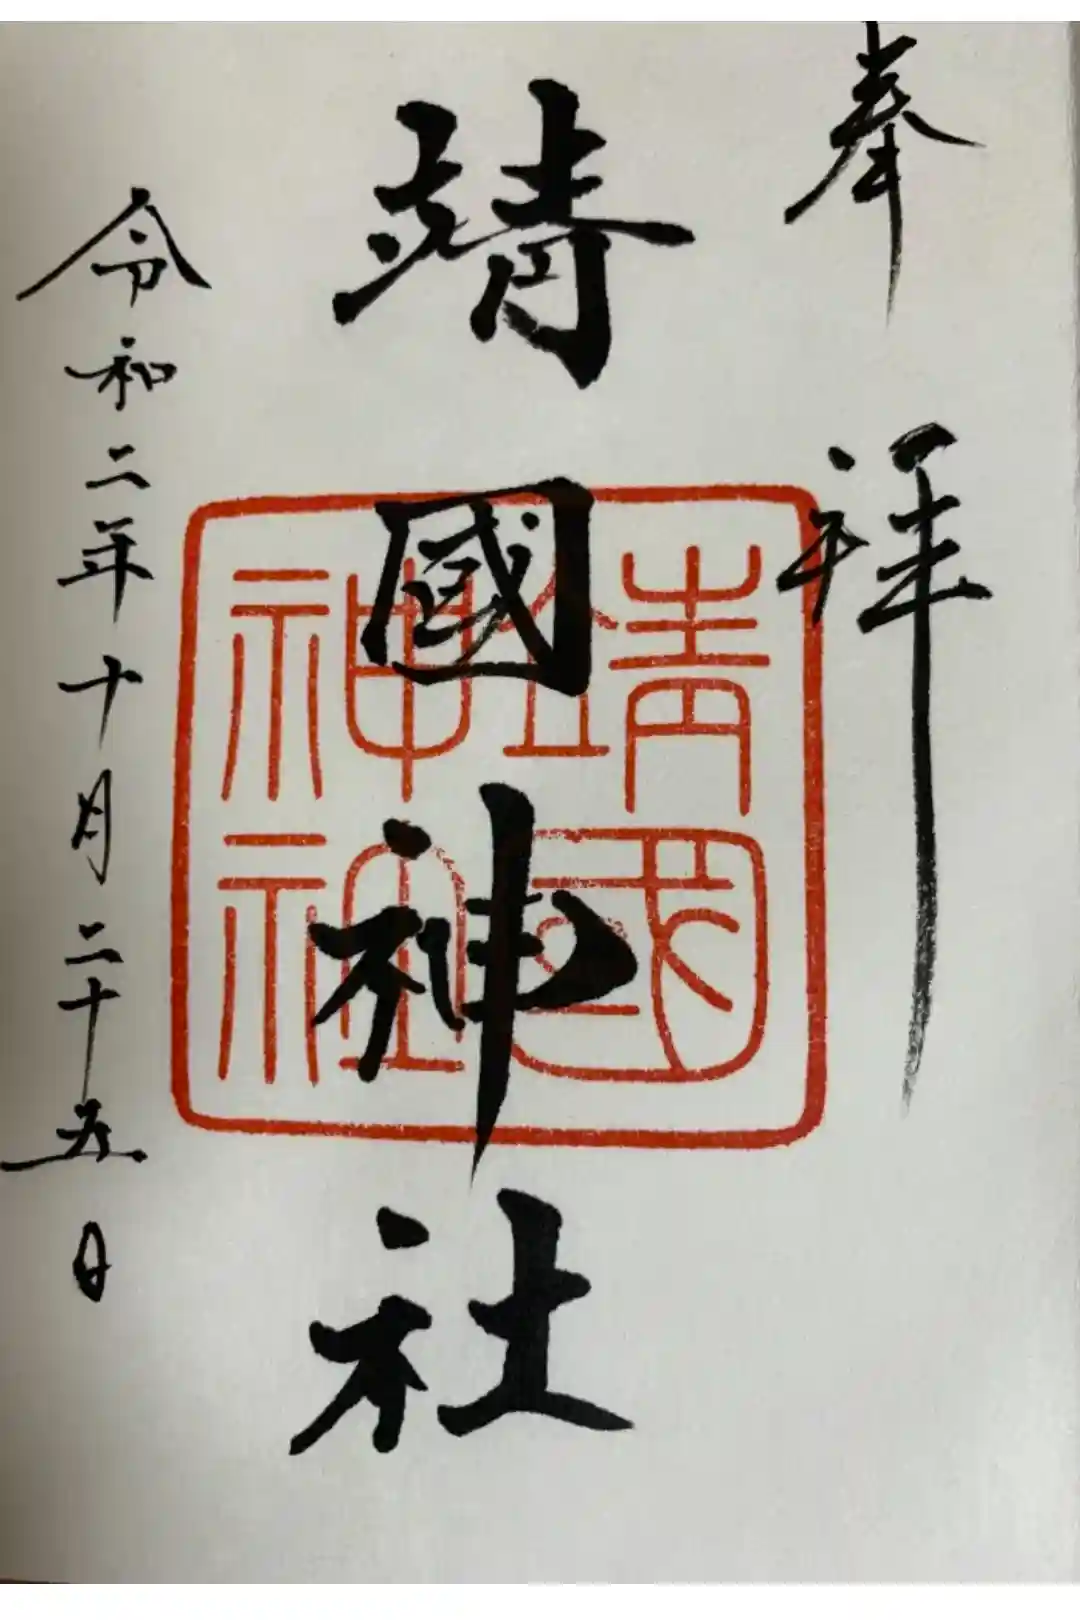 奉拝
靖國神社
靖國神社
令和二年十月二十五日